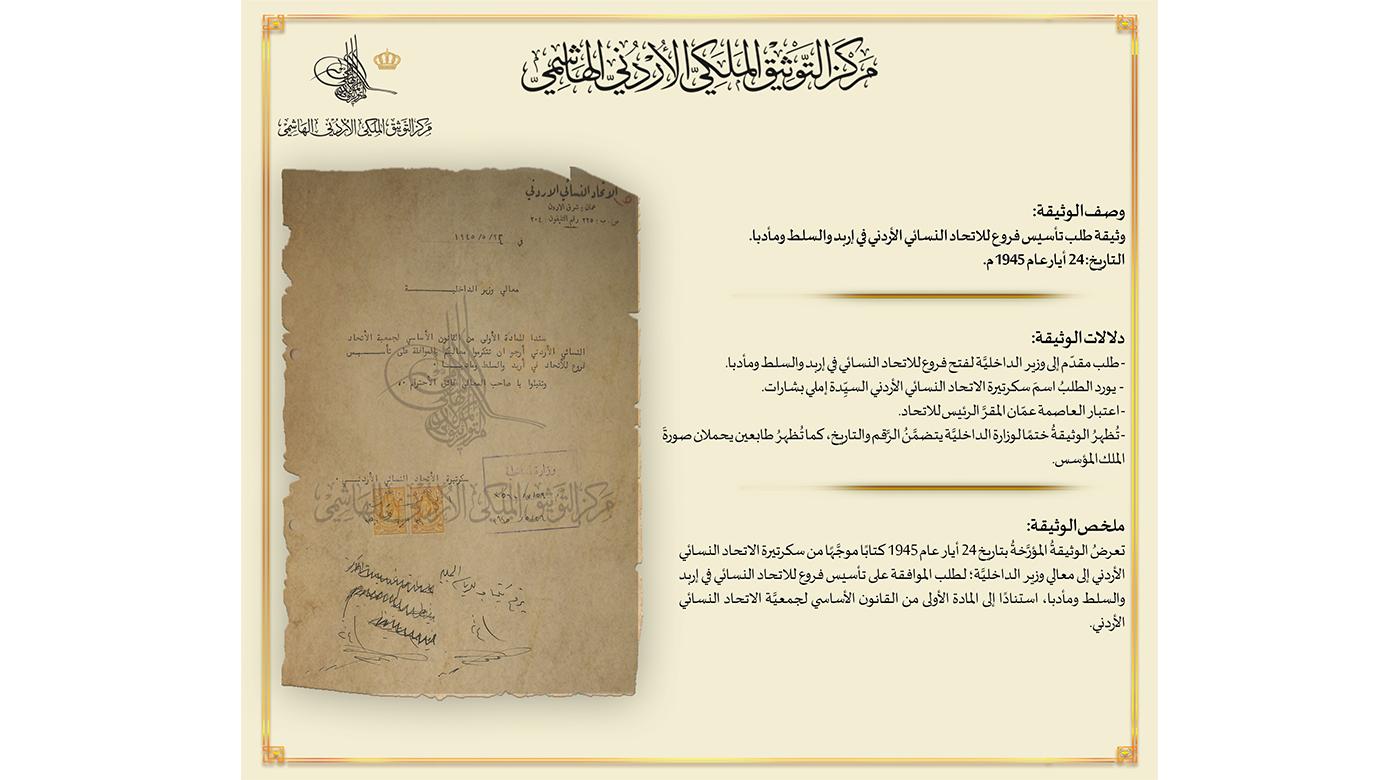 مَركَز التَّوثيق المَلَكيّ الأُردُنيّ الهَاشِميّ
مركز التوثيق الملكي الأردني الهاشمي
وصف الوثيقة:
وثيقة طلب تأسيس فروع للاتحاد النسائي الأردني في إربد والسلط ومأدبا.
التاريخ: 24 أيار عام 1945 م.
دلالات الوثيقة:
-طلب مقدّم إلى وزير الداخليَّة لفتح فروع للاتحاد النسائي في إربد والسلط ومأدبا.
- يورد الطلبُ اسمَ سكرتيرة الاتحاد النسائي الأردني السيّدة إملي بشارات.
-اعتبار العاصمة عمّان المقرَّ الرئيس للاتحاد.
-تُظهرُ الوثيقةُ ختمًا لوزارة الداخليَّة يتضمَّنُ الرَّقم والتاريخ، كما تُظهرُ طابعين يحملان صورةَ
الملك المؤسس.
ملخص الوثيقة:
تعرضُ الوثيقةُ المؤرَّخةُ بتاريخ 24 أيار عام 1945 كتابًا موجَّهًا من سكرتيرة الاتحاد النسائي
الأردني إلى معالي وزير الداخليَّة؛ لطلب الموافقة على تأسيس فروع للاتحاد النسائي في إربد
والسلط ومأدبا، استنادًا إلى المادة الأولى من القانون الأساسي لجمعيَّة الاتحاد النسائي
الأردني.
الاتحاد النسائي الاردني
عمان : شرق الاردن
ص . ب : ٢٢٥ رقم التلفون : ٢٠٤
في ١٩٤٥/٥/٢٤
معالي وزير الداخليـــــــة
سندا للمادة الأولى من القانون الأساسي لجمعية الأتحاد
النسائي الأردني أرجو ان تتكرموا معاليكم بالموافقة على تأســـيس
فروع للأتحاد في أربد والسلط ومادبـــا .
وتفضلوا يا صاحب المعالي فائق الأحترام
سكرتيرة الأتحاد النسائي الأردنـــي .
وزارة الداخلية
مركز التوثيق الملكي الأردني الهاشمي